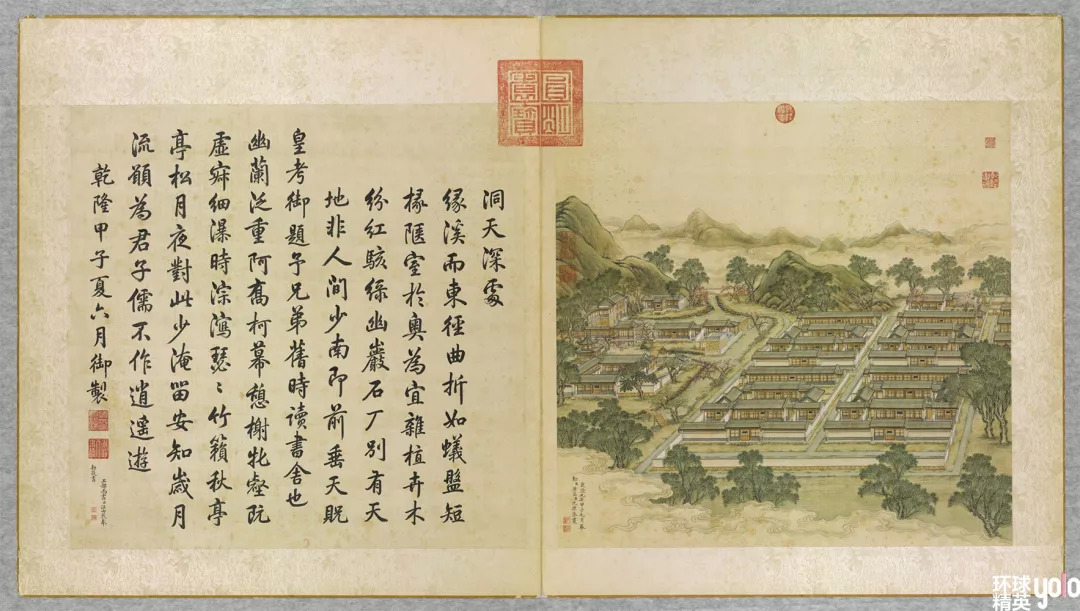 洞天深處
緣溪而東徑曲折如蟻盤短
椽陋室於奧為宜雜植卉木
紛紅駭綠幽巖石厂別有天
地非人間少南即前垂天貺
皇考御題予兄弟舊時讀書舍也
幽蘭泛重阿喬柯幕憩榭牝壑既
虛寂細瀑時淙瀉瑟〻竹籟秋亭
亭松月夜對此少淹留安知歲月
流願為君子儒不作逍遙遊
乾隆甲子夏六月御製
工部尚書臣汪由敦奉
敕敬書
环球
精英
yolo